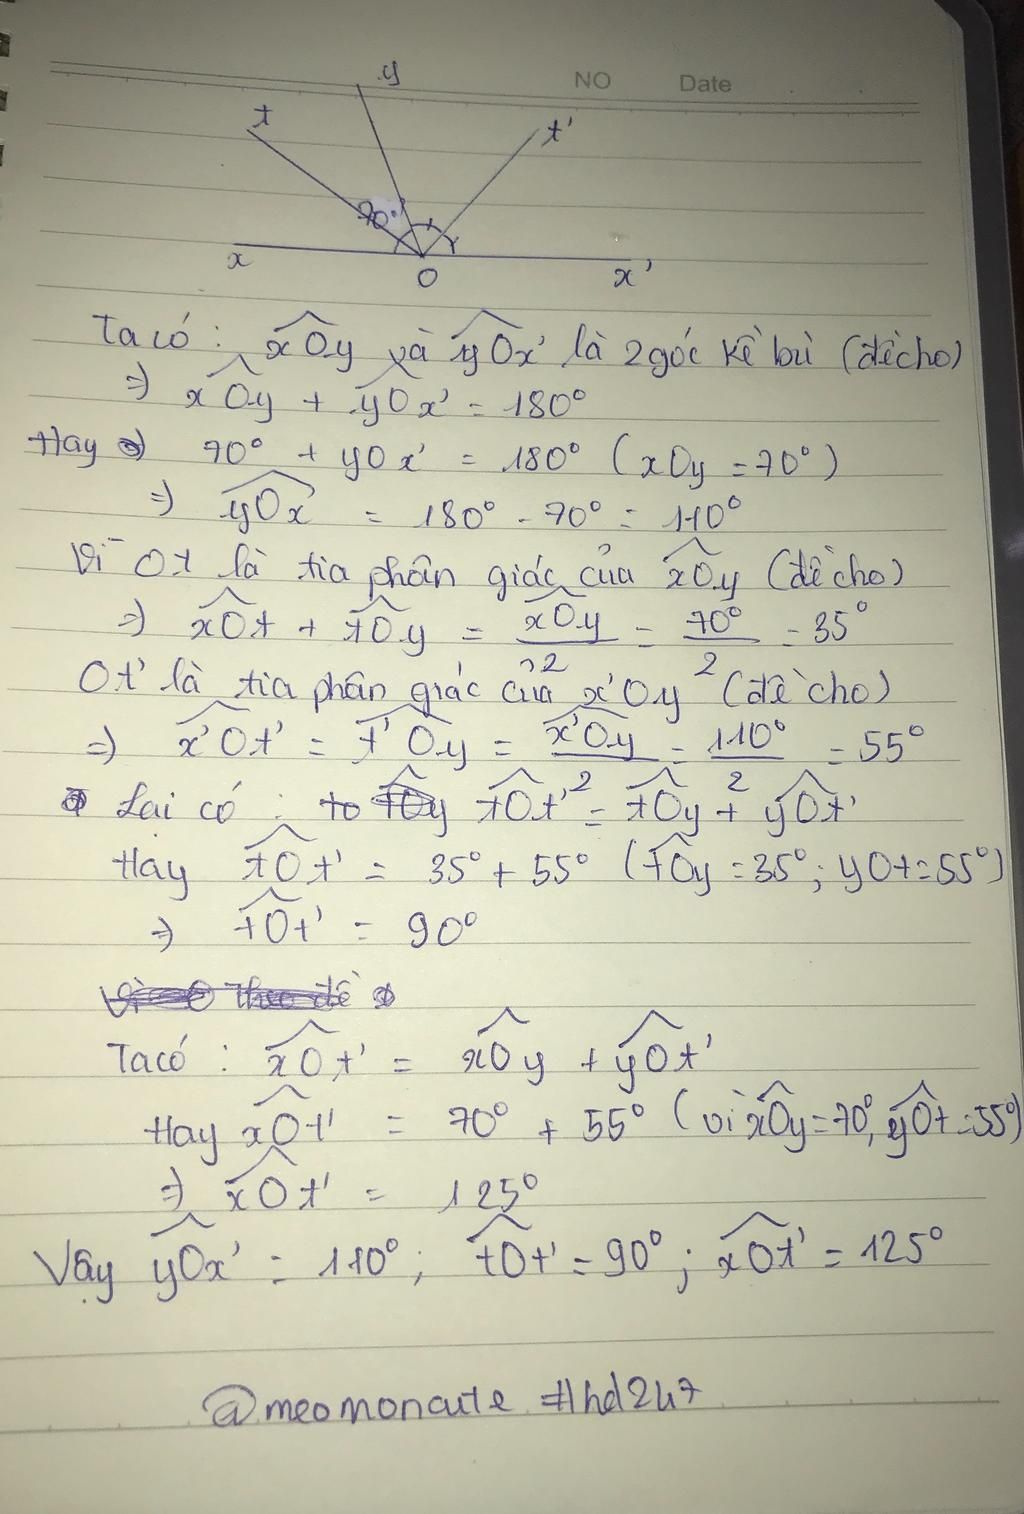 NO Date
y
t
t'
70°
x
O
x'
Ta có : xOy và yOx' là 2 góc kề bù (đề cho)
=> xOy + yOx' = 180°
Hay 70° + yOx' = 180° (xOy = 70°)
=> yOx = 180° - 70° = 110°
Vì Ot là tia phân giác của xOy (đề cho)
=> xOt + tOy = xOy/2 = 70°/2 = 35°
Ot' là tia phân giác của x'Oy (đề cho)
=> x'Ot' = t'Oy = x'Oy/2 = 110°/2 = 55°
Lại có : tOt' = tOy + yOt'
Hay tOt' = 35° + 55° (tOy = 35° ; yOt = 55°)
=> tOt' = 90°
Ta có : xOt' = xOy + yOt'
Hay xOt' = 70° + 55° (vì xOy = 70°, yOt = 55°)
=> xOt' = 125°
Vậy yOx' = 110° ; tOt' = 90° ; xOt' = 125°
@meomoncute #hd247